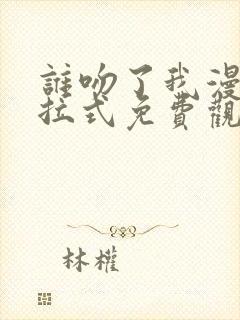 誰吻了我漫
拉式免費觀
林權